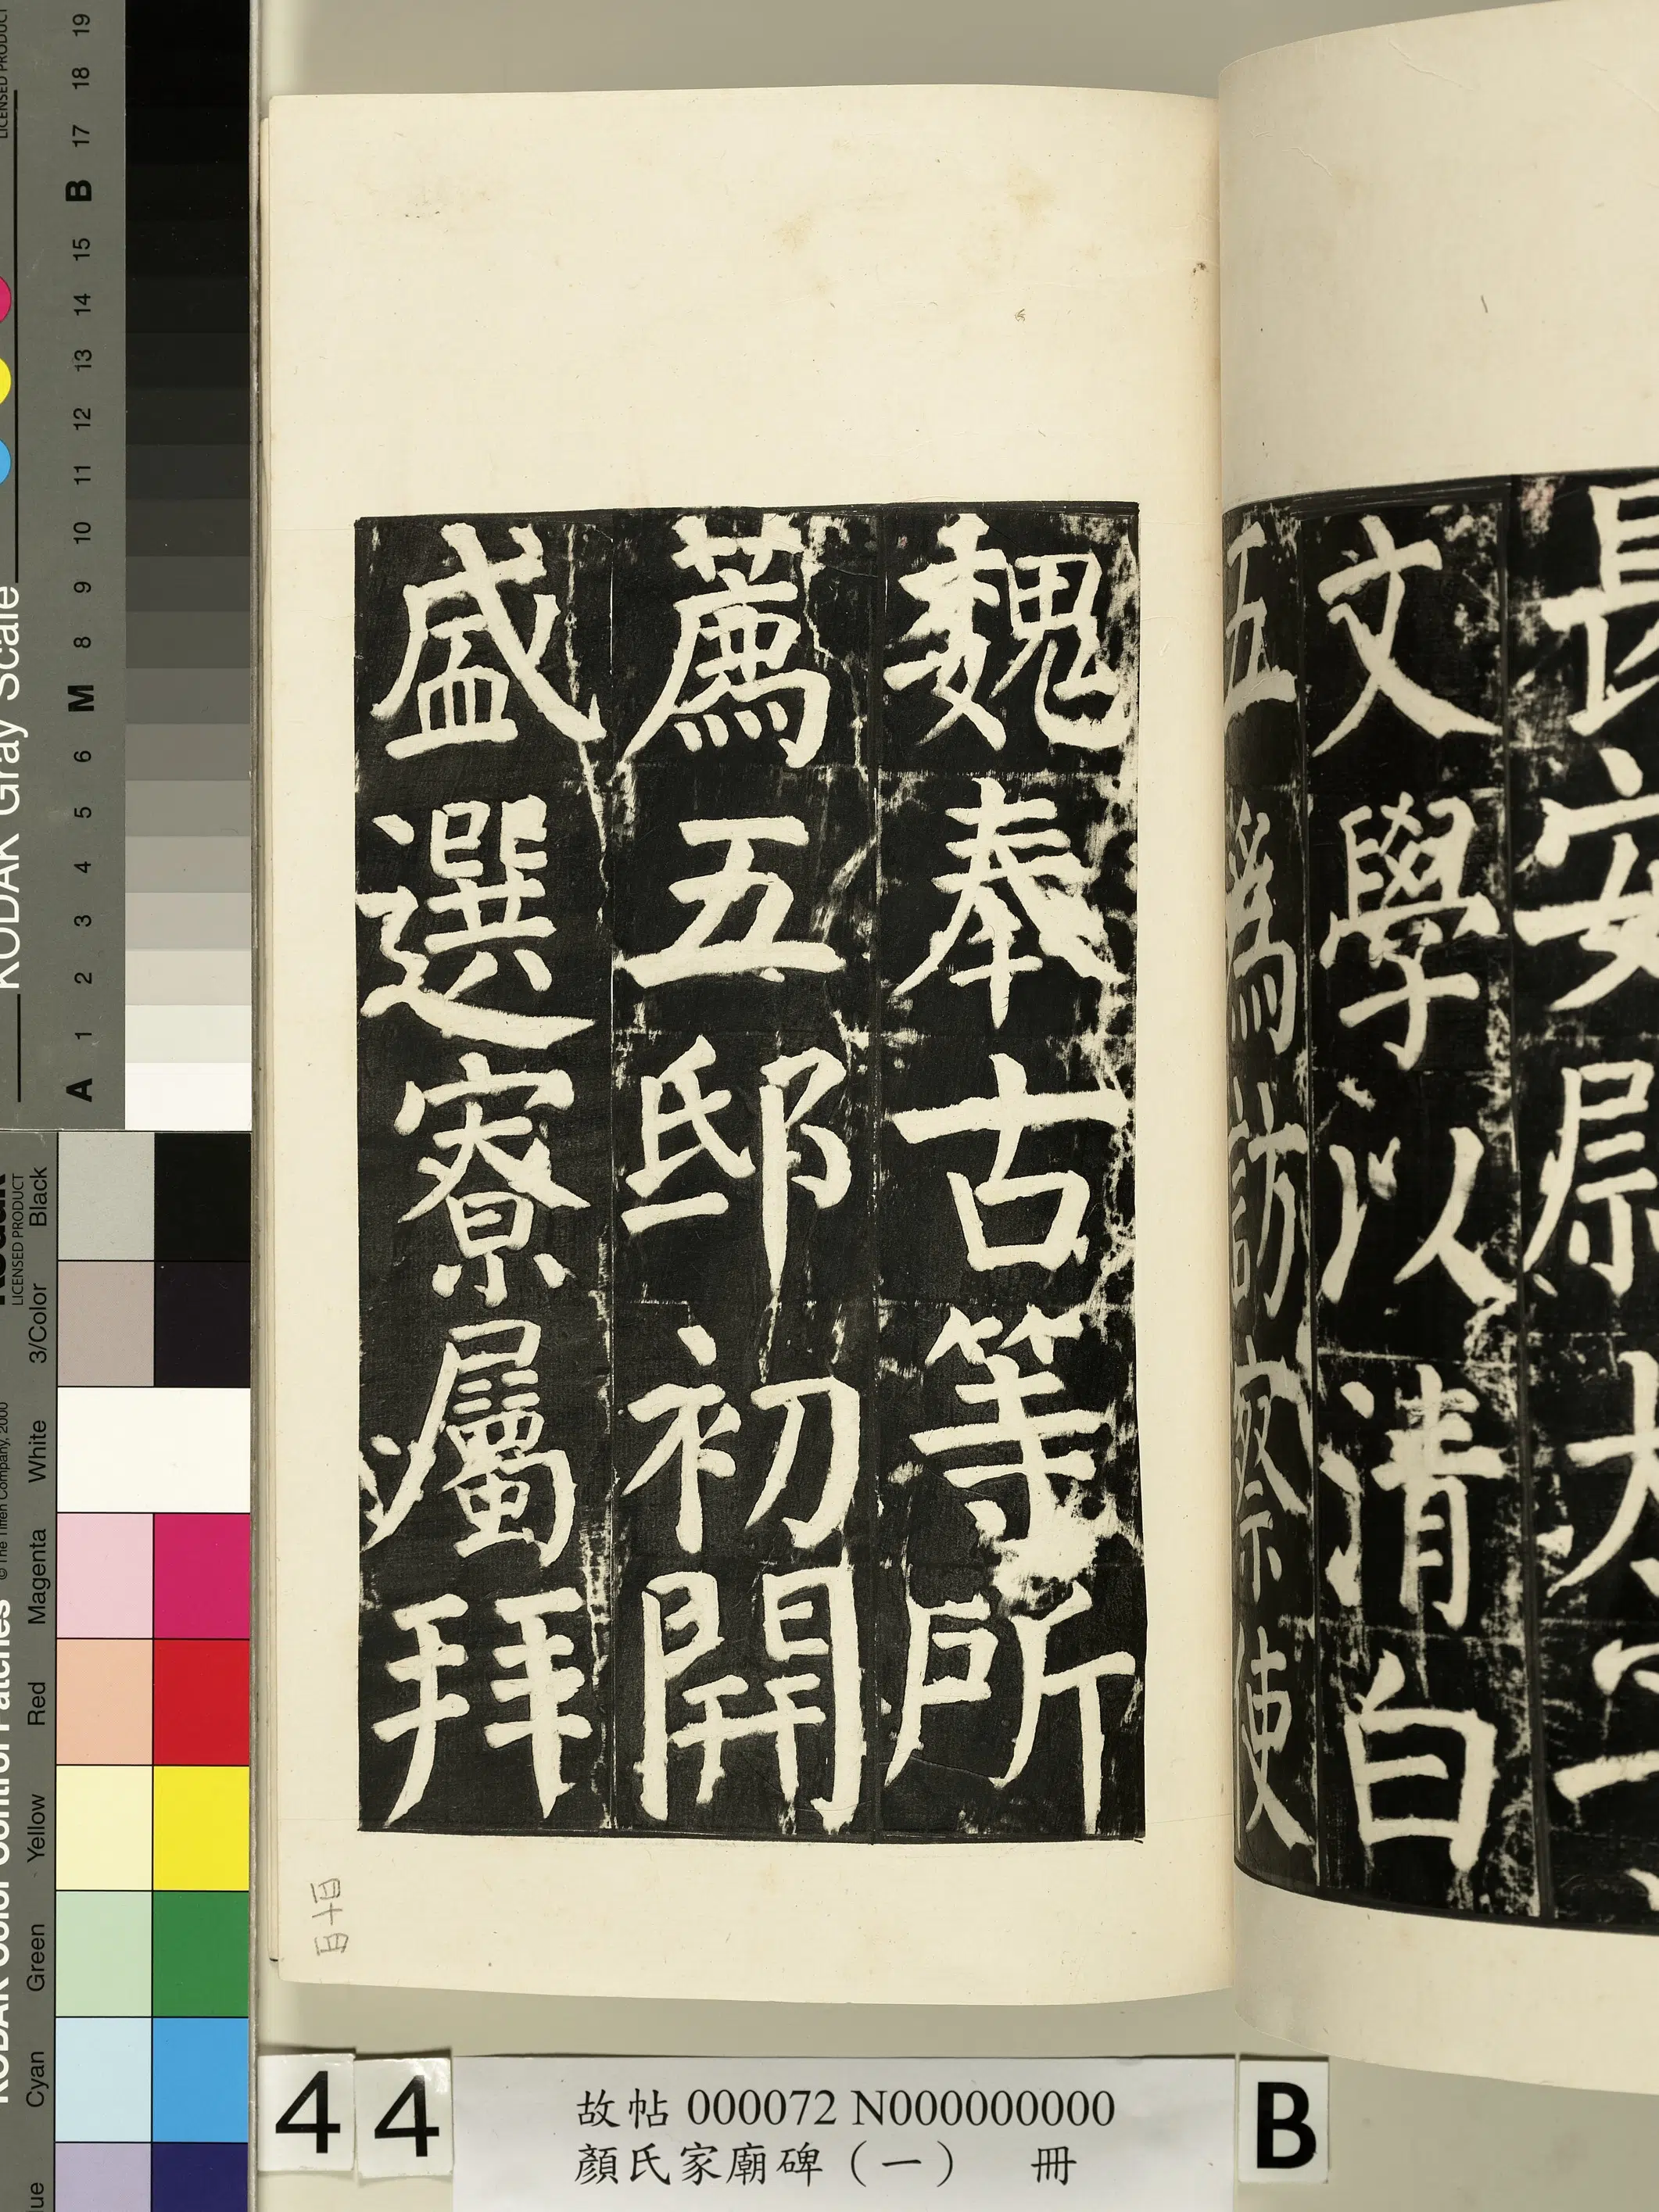 長安尉太子
文學以清白
五為訪察使
魏奉古等所
薦五邸初開
盛選寮屬拜
四十四
44
故帖 000072 N000000000
顏氏家廟碑（一） 冊
B
KODAK Gray Scale
LICENSED PRODUCT
A 1 2 3 4 5 6 M 8 9 10 11 12 13 14 15 B 17 18 19
KODAK Color Control Patches
© The Tiffen Company, 2000
Kodak
LICENSED PRODUCT
Cyan Green Yellow Red Magenta White 3/Color Black